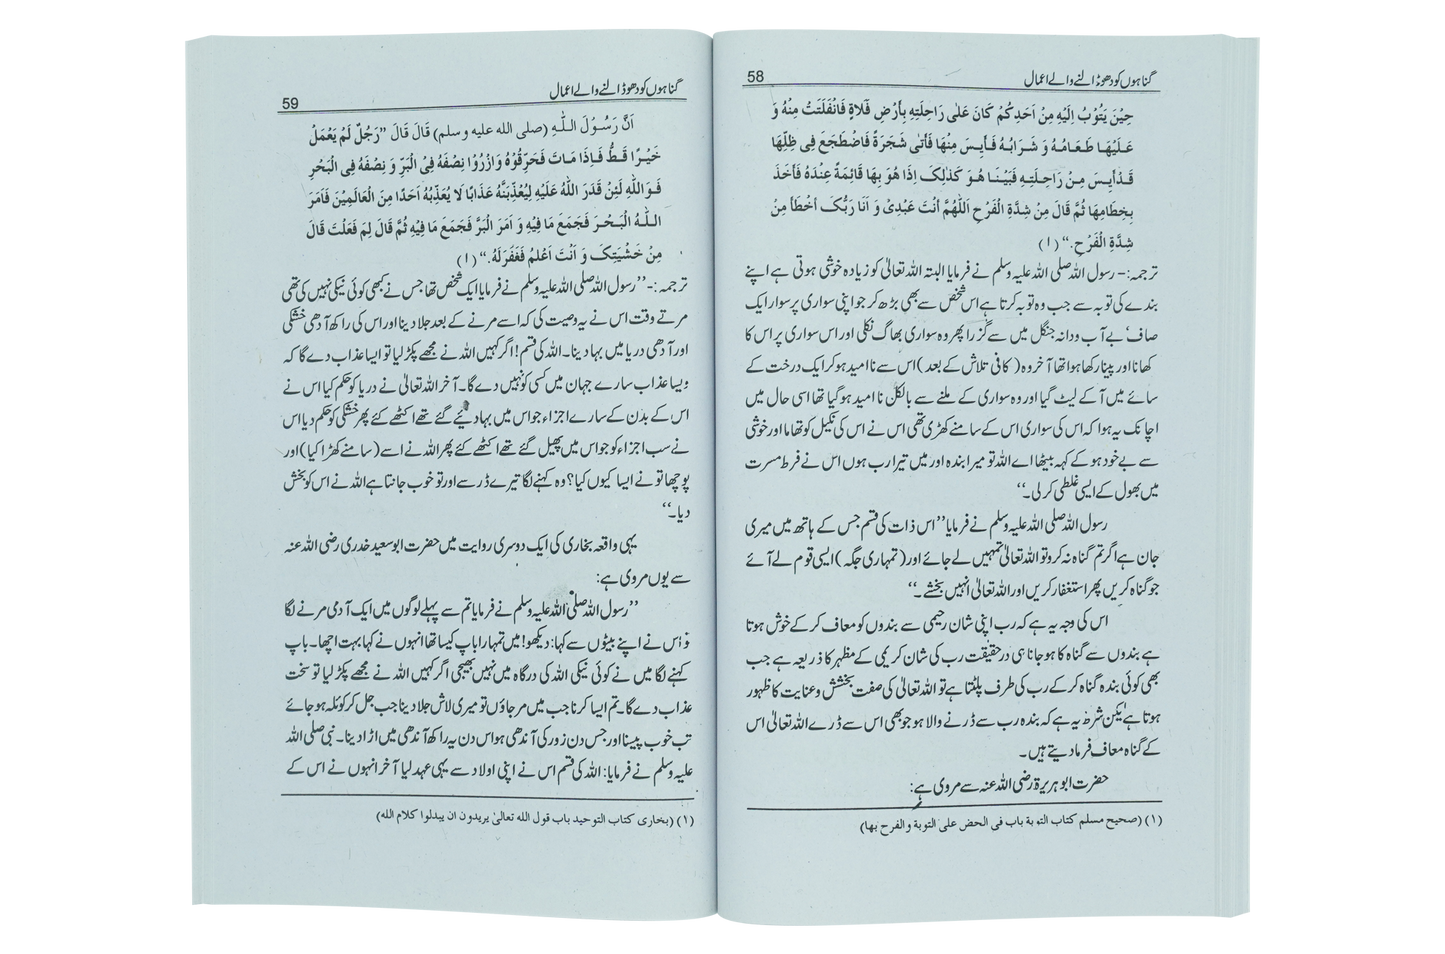 58 گناہوں کو دھو ڈالنے والے اعمال
حِيْنَ يَتُوْبُ اِلَيْهِ مِنْ اَحَدِكُمْ كَانَ عَلٰى رَاحِلَتِهٖ بِأَرْضٍ فَلَاةٍ فَانْفَلَتَتْ مِنْهُ وَ
عَلَيْهَا طَعَامُهٗ وَ شَرَابُهٗ فَأَيِسَ مِنْهَا فَأَتٰى شَجَرَةً فَاضْطَجَعَ فِى ظِلِّهَا
قَدْأَيِسَ مِنْ رَاحِلَتِهٖ فَبَيْنَا هُوَ كَذٰلِكَ اِذَا هُوَ بِهَا قَائِمَةً عِنْدَهٗ فَأَخَذَ
بِخِطَامِهَا ثُمَّ قَالَ مِنْ شِدَّةِ الْفَرَحِ اَللّٰهُمَّ أَنْتَ عَبْدِىْ وَ اَنَا رَبُّكَ اَخْطَأَ مِنْ
شِدَّةِ الْفَرَحِ.“ (۱)
ترجمہ:۔ رسول اللہ صلی اللہ علیہ وسلم نے فرمایا البتہ اللہ تعالیٰ کو زیادہ خوشی ہوتی ہے اپنے
بندے کی توبہ سے جب وہ توبہ کرتا ہے اس شخص سے بھی بڑھ کر جو اپنی سواری پر سوار ایک
صاف بے آب ودانہ جنگل میں سے گزرا پھر وہ سواری بھاگ نکلی اور اس سواری پر اس کا
کھانا اور پینا رکھا ہوا تھا آخر وہ (کافی تلاش کے بعد) اس سے ناامید ہو کر ایک درخت کے
سائے میں آ کے لیٹ گیا اور وہ سواری کے ملنے سے بالکل ناامید ہو گیا تھا اسی حال میں
اچانک یہ ہوا کہ اس کی سواری اس کے سامنے کھڑی تھی اس نے اس کی نکیل کو تھاما اور خوشی
سے بے خود ہو کے کہہ بیٹھا اے اللہ تو میرا بندہ اور میں تیرا رب ہوں اس نے فرط مسرت
میں بھول کے ایسی غلطی کر لی۔“
رسول اللہ صلی اللہ علیہ وسلم نے فرمایا ”اس ذات کی قسم جس کے ہاتھ میں میری
جان ہے اگر تم گناہ نہ کرو تو اللہ تعالیٰ تمہیں لے جائے اور (تمہاری جگہ) ایسی قوم لے آئے
جو گناہ کریں پھر استغفار کریں اور اللہ تعالیٰ انہیں بخشے۔“
اس کی وجہ یہ ہے کہ رب اپنی شان رحیمی سے بندوں کو معاف کر کے خوش ہوتا
ہے بندوں سے گناہ کا ہو جانا ہی درحقیقت رب کی شان کریمی کے مظہر کا ذریعہ ہے جب
بھی کوئی بندہ گناہ کر کے رب کی طرف پلٹتا ہے تو اللہ تعالیٰ کی صفت بخشش وعنایت کا ظہور
ہوتا ہے لیکن شرط یہ ہے کہ بندہ رب سے ڈرنے والا ہو جو بھی اس سے ڈرے اللہ تعالیٰ اس
کے گناہ معاف فرما دیتے ہیں۔
حضرت ابو ہریرۃ رضی اللہ عنہ سے مروی ہے:
(۱) (صحیح مسلم کتاب التوبة باب فی الحض علی التوبة والفرح بها)
59 گناہوں کو دھو ڈالنے والے اعمال
اَنَّ رَسُوْلَ اللّٰهِ (صلى الله عليه وسلم) قَالَ قَالَ ”رَجُلٌ لَمْ يَعْمَلْ
خَيْرًا قَطُّ فَاِذَا مَاتَ فَحَرِّقُوْهُ وَاذْرُوْا نِصْفَهٗ فِى الْبَرِّ وَ نِصْفَهٗ فِى الْبَحْرِ
فَوَاللّٰهِ لَئِنْ قَدَرَ اللّٰهُ عَلَيْهِ لِيُعَذِّبَنَّهٗ عَذَابًا لَا يُعَذِّبُهٗ اَحَدًا مِنَ الْعَالَمِيْنَ فَاَمَرَ
اللّٰهُ الْبَحْرَ فَجَمَعَ مَا فِيْهِ وَ اَمَرَ الْبَرَّ فَجَمَعَ مَا فِيْهِ ثُمَّ قَالَ لِمَ فَعَلْتَ قَالَ
مِنْ خَشْيَتِكَ وَ اَنْتَ اَعْلَمُ فَغَفَرَلَهٗ.“ (۱)
ترجمہ:۔”رسول اللہ صلی اللہ علیہ وسلم نے فرمایا ایک شخص تھا جس نے کبھی کوئی نیکی نہیں کی تھی
مرتے وقت اس نے یہ وصیت کی کہ اسے مرنے کے بعد جلا دینا اور اس کی راکھ آدھی خشکی
اور آدھی دریا میں بہا دینا۔ اللہ کی قسم! اگر کہیں اللہ نے مجھے پکڑ لیا تو ایسا عذاب دے گا کہ
ویسا عذاب سارے جہان میں کسی کو نہیں دے گا۔ آخر اللہ تعالیٰ نے دریا کو حکم کیا اس نے
اس کے بدن کے سارے اجزاء جو اس میں بہا دئیے گئے تھے اکٹھے کئے پھر خشکی کو حکم دیا اس
نے سب اجزاء کو جو اس میں پھیل گئے تھے اکٹھے کئے پھر اللہ نے اسے (سامنے کھڑا کیا) اور
پوچھا تو نے ایسا کیوں کیا؟ وہ کہنے لگا تیرے ڈر سے اور تو خوب جانتا ہے اللہ نے اس کو بخش
دیا۔“
یہی واقعہ بخاری کی ایک دوسری روایت میں حضرت ابو سعید خدری رضی اللہ عنہ
سے یوں مروی ہے:
”رسول اللہ صلی اللہ علیہ وسلم نے فرمایا تم سے پہلے لوگوں میں ایک آدمی مرنے لگا
تو اس نے اپنے بیٹوں سے کہا: دیکھو! میں تمہارا باپ کیسا تھا انہوں نے کہا بہت اچھا۔ باپ
کہنے لگا میں نے کوئی نیکی اللہ کی درگاہ میں نہیں بھیجی اگر کہیں اللہ نے مجھے پکڑ لیا تو سخت
عذاب دے گا۔ تم ایسا کرنا جب میں مر جاؤں تو میری لاش جلا دینا جب جل کر کوئلہ ہو جائے
تب خوب پیسنا اور جس دن زور کی آندھی ہو اس دن یہ راکھ آندھی میں اڑا دینا۔ نبی صلی اللہ
علیہ وسلم نے فرمایا: اللہ کی قسم اس نے اپنی اولاد سے یہی عہد لیا آخر انہوں نے اس کے
(۱) (بخاری کتاب التوحید باب قول الله تعالیٰ یریدون ان یبدلوا کلام الله)